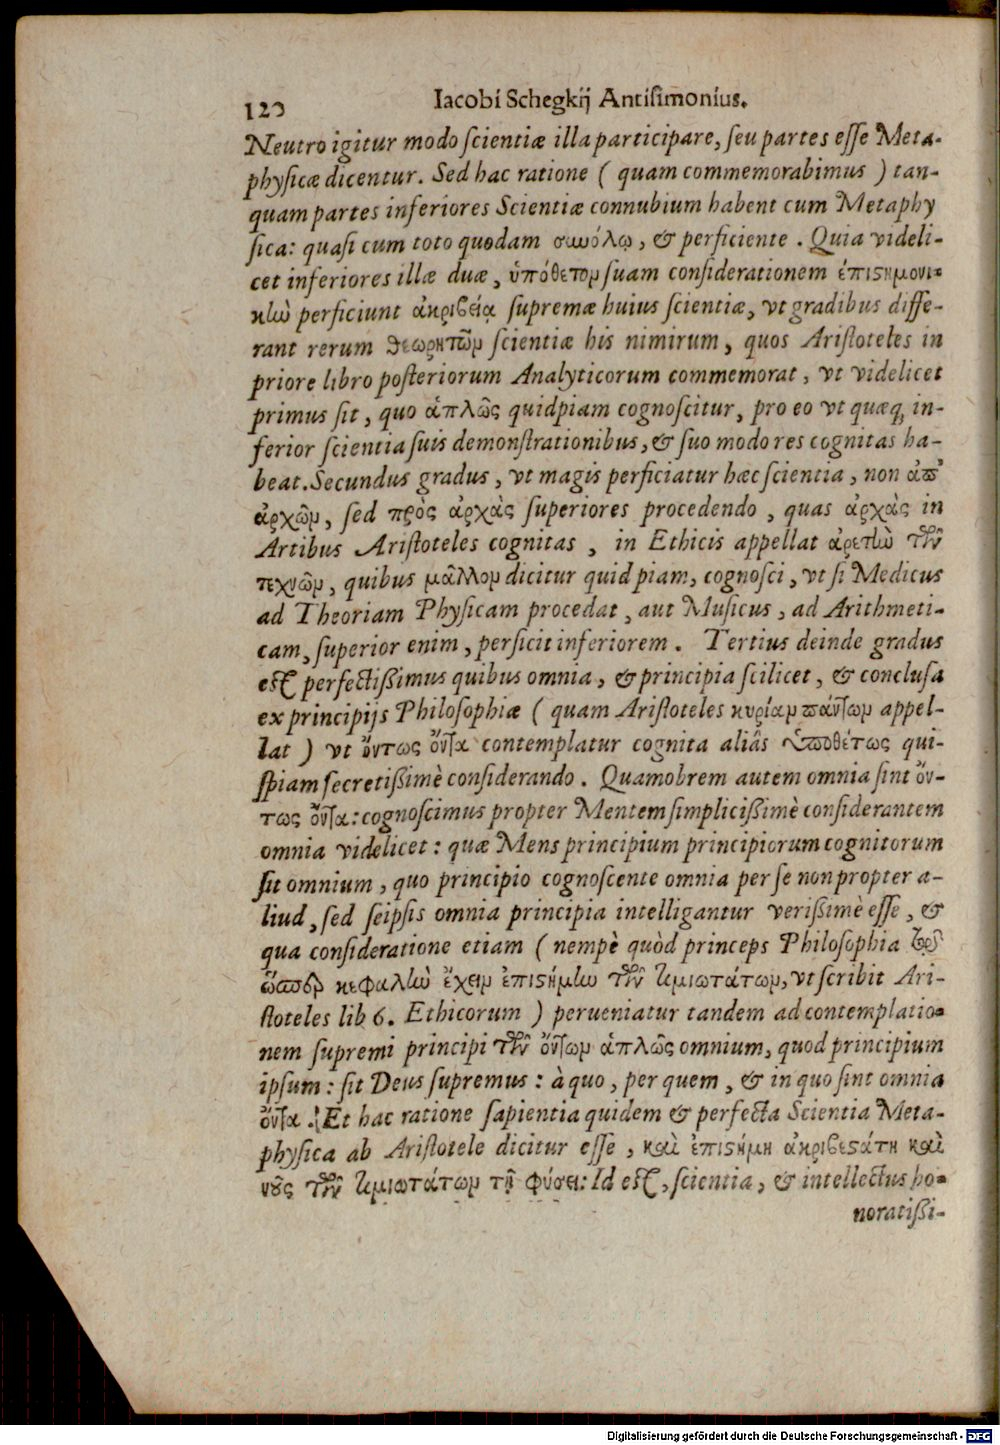 120
Iacobi Schegkij Antisimonius.
Neutro igitur modo scientiæ illa participare, seu partes esse Meta-
physicæ dicentur. Sed hac ratione ( quam commemorabimus ) tan-
quam partes inferiores Scientiæ connubium habent cum Metaphy
sica: quasi cum toto quodam συνόλῳ, & perficiente. Quia videli-
cet inferiores illæ duæ, ὑπόθετον suam considerationem ἐπιστημονι-
κὴν perficiunt ἀκριβείᾳ supremæ huius scientiæ, vt gradibus diffe-
rant rerum θεωρητῶν scientiæ his nimirum, quos Aristoteles in
priore libro posteriorum Analyticorum commemorat, vt videlicet
primus sit, quo ἁπλῶς quidpiam cognoscitur, pro eo vt quæq; in-
ferior scientia suis demonstrationibus, & suo modo res cognitas ha-
beat. Secundus gradus, vt magis perficiatur hæc scientia, non ἀπ'
ἀρχῶν, sed πρὸς ἀρχὰς superiores procedendo, quas ἀρχὰς in
Artibus Aristoteles cognitas, in Ethicis appellat ἀρετὴν τῶν
τεχνῶν, quibus μᾶλλον dicitur quidpiam, cognosci, vt si Medicus
ad Theoriam Physicam procedat, aut Musicus, ad Arithmeti-
cam, superior enim, perficit inferiorem. Tertius deinde gradus
est perfectißimus quibus omnia, & principia scilicet, & conclusa
ex principijs Philosophiæ ( quam Aristoteles κυρίαν πάντων appel-
lat ) vt ὄντως ὄντα contemplatur cognita aliâs ὑποθέτως qui-
spiam secretißimè considerando. Quamobrem autem omnia sint ὄν-
τως ὄντα: cognoscimus propter Mentem simplicißimè considerantem
omnia videlicet: quæ Mens principium principiorum cognitorum
sit omnium, quo principio cognoscente omnia per se non propter a-
liud, sed seipsis omnia principia intelligantur verißimè esse, &
qua consideratione etiam ( nempè quòd princeps Philosophia
ὥσπερ κεφαλὴν ἔχειν ἐπιστήμην τῶν τιμιωτάτων, vt scribit Ari-
stoteles lib 6. Ethicorum ) perueniatur tandem ad contemplatio-
nem supremi principi τῶν ὄντων ἁπλῶς omnium, quod principium
ipsum: sit Deus supremus: à quo, per quem, & in quo sint omnia
ὄντα. Et hac ratione sapientia quidem & perfecta Scientia Meta-
physica ab Aristotele dicitur esse, καὶ ἐπιστήμη ἀκριβεστάτη καὶ
νοῦς τῶν τιμιωτάτων τῇ φύσει: Id est, scientia, & intellectus ho-
noratißi-
Digitalisierung gefördert durch die Deutsche Forschungsgemeinschaft - DFG